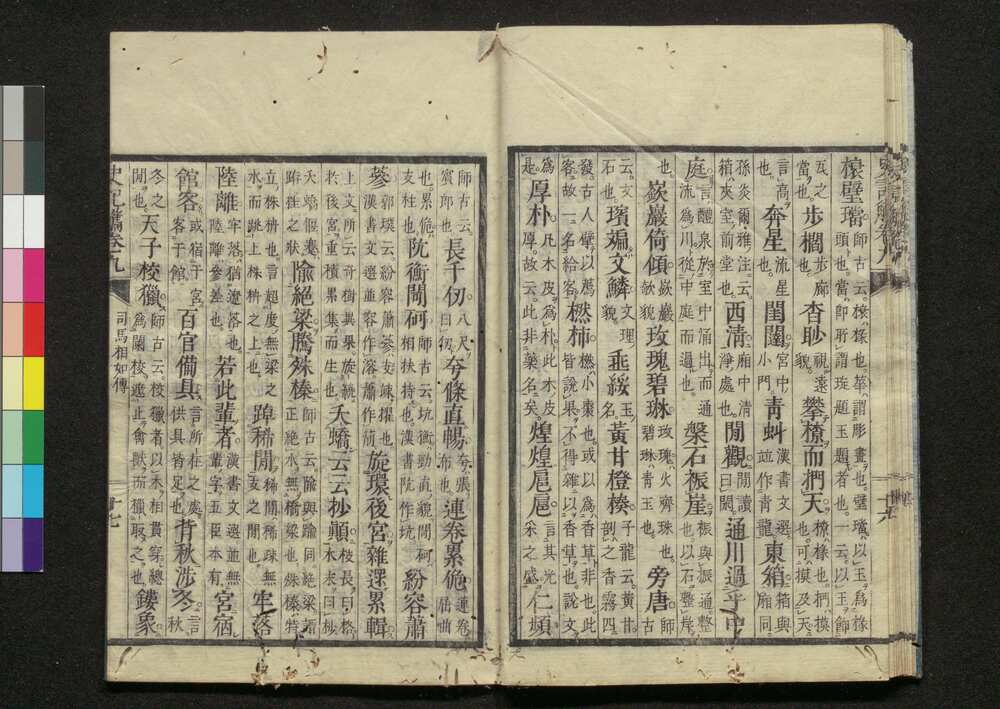 榱壁璫 師古云榱椽也華謂彫畫也璧璫以玉爲椽頭也當即所謂琁題玉題者也一云以玉師
瓦之當也 步櫚 步廊也 杳眇 視遠貌 攀橑而捫天 橑椽也捫摸也可摸及天
言高也 奔星 流星也 閨闥 宮中小門 青虯 漢書文選並作青龍 東箱 箱與廂同
孫炎爾雅注云箱夾室前堂 西淸 廂中清淨處也 閒觀 閒讀曰閑 通川過乎中
庭 言醴泉於室中涌出而通流爲川從中庭而過也 槃石裖崖 裖與振通整也以石整岸
也 嶔巖倚傾 嶔巖欹貌 玫瑰碧琳 玫瑰火齊珠也碧琳青玉也 旁唐 師古
云文石也 璸斒文鱗 文理貌 垂綏 玉名 黃甘橙楱 子龍云黃甘剖之香霧四
發古人擘以薦客故一名給客 橪柿 橪小棗也或以爲香草非也此皆說果不得雜以香草也說文
爲是 厚朴 凡木皮爲朴此木皮厚故云此非藥名矣 煌煌扈扈 言其光采之盛 仁頻
師古云賓郎也 長千仞 八尺曰仞 夸條直暢 夸張布也 連卷累佹 連卷屈曲
也累佹支柱也 阬衡閜砢 師古云坑衡勁直貌閜砢相扶持也漢書阬作坑 紛容蕭
蔘 郭璞云紛容蕭蔘支竦擢也漢書文選並容作溶蕭作萷 旋環後宮雜遝累輯
上文所云奇樹異果旋繞於後宮重積累集而生也 夭蟜云云抄顚 枝長曰格木末曰杪
夭蟜偃蹇跱柱之狀 隃絕梁騰殊榛 師古云隃與踰同絕梁謂正絕水無橋梁也殊榛特
立株枿也言超度無梁之水而跳上株枿之上也 踔稀閒 稀閒稀疎無支之閒也 牢落
陸離 牢落猶遼落也陸離參差也 若此輩者 漢書文選並無輩字五臣本有 宮宿
館客 或宿于宮客于館 百官備具 言所在之處供具皆足也 背秋涉冬 言秋
冬之閒也 天子校獵 師古云校獵者以木相貫穿總爲闌校遮止禽獸而獵取之也 鏤象
史記觿卷九 司馬相如傳 十七